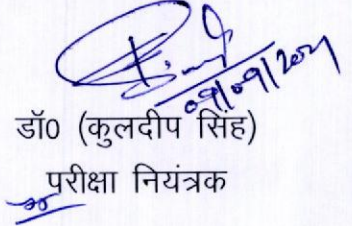 09/09/2021
डॉ0 (कुलदीप सिंह)
परीक्षा नियंत्रक